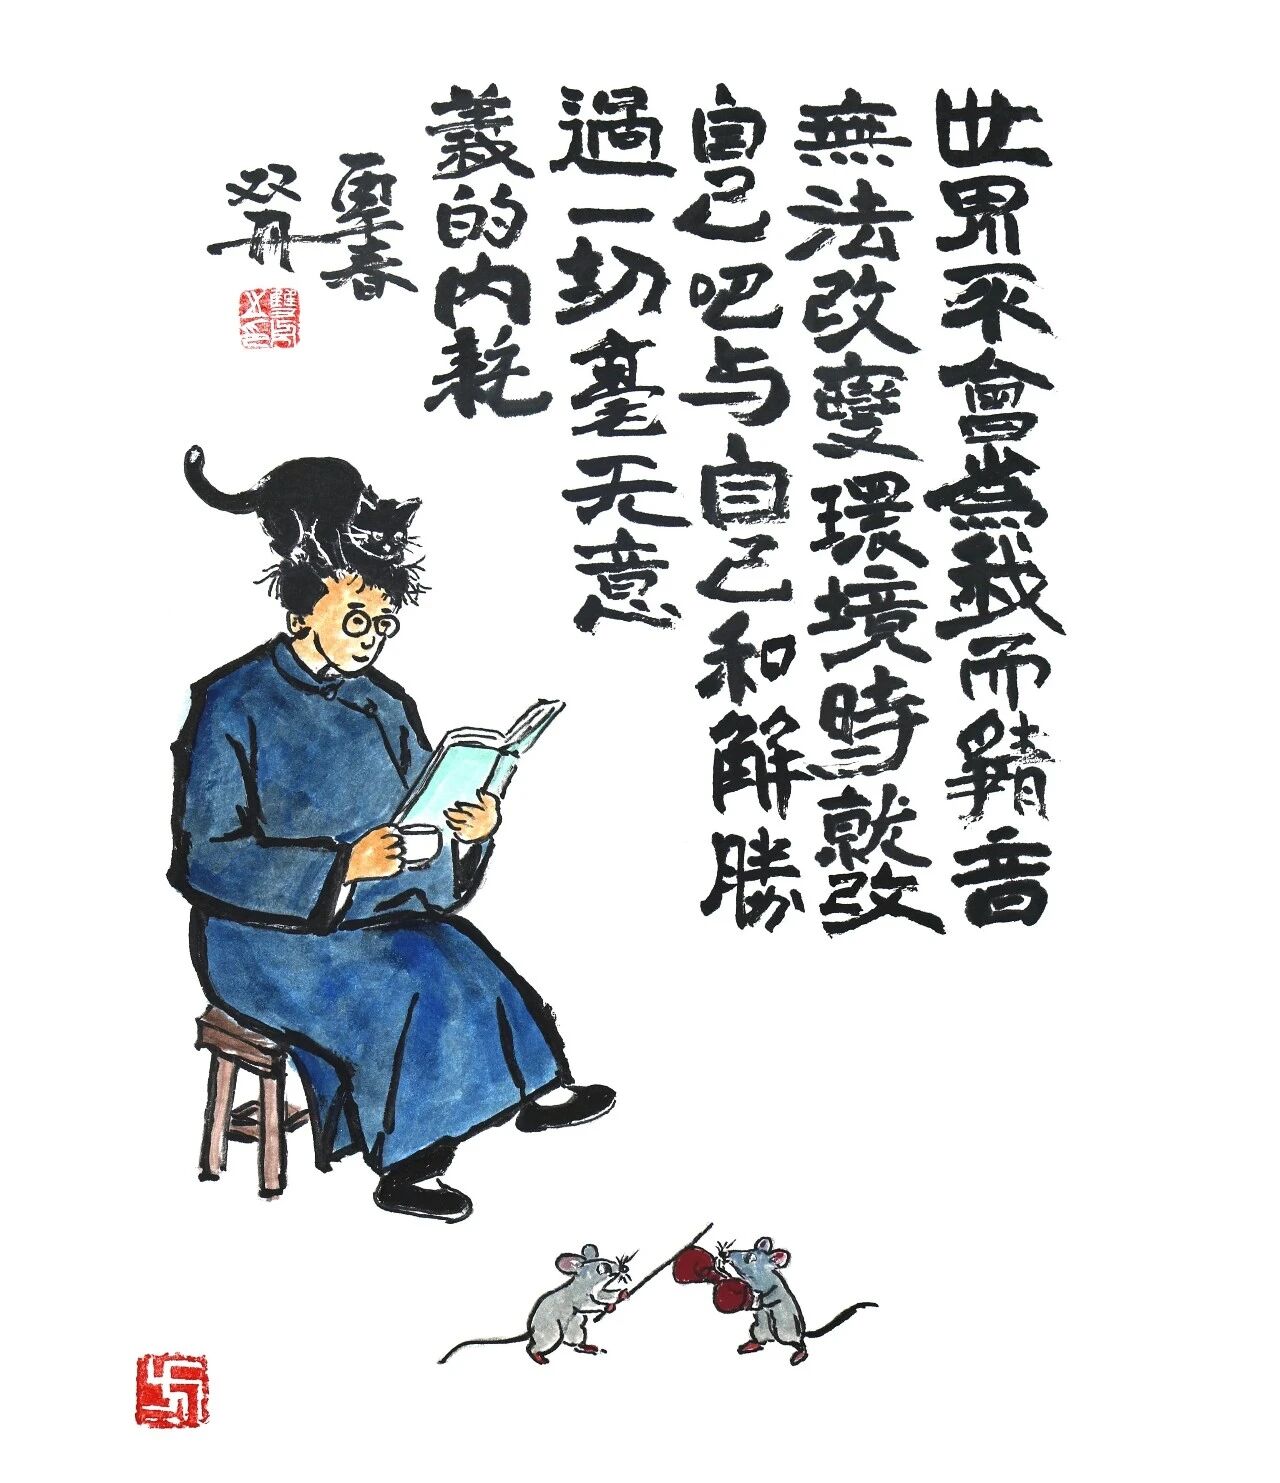 世界不會為我而靜音
無法改變環境時就改
自己吧与自己和解勝
過一切毫无意
義的内耗
春